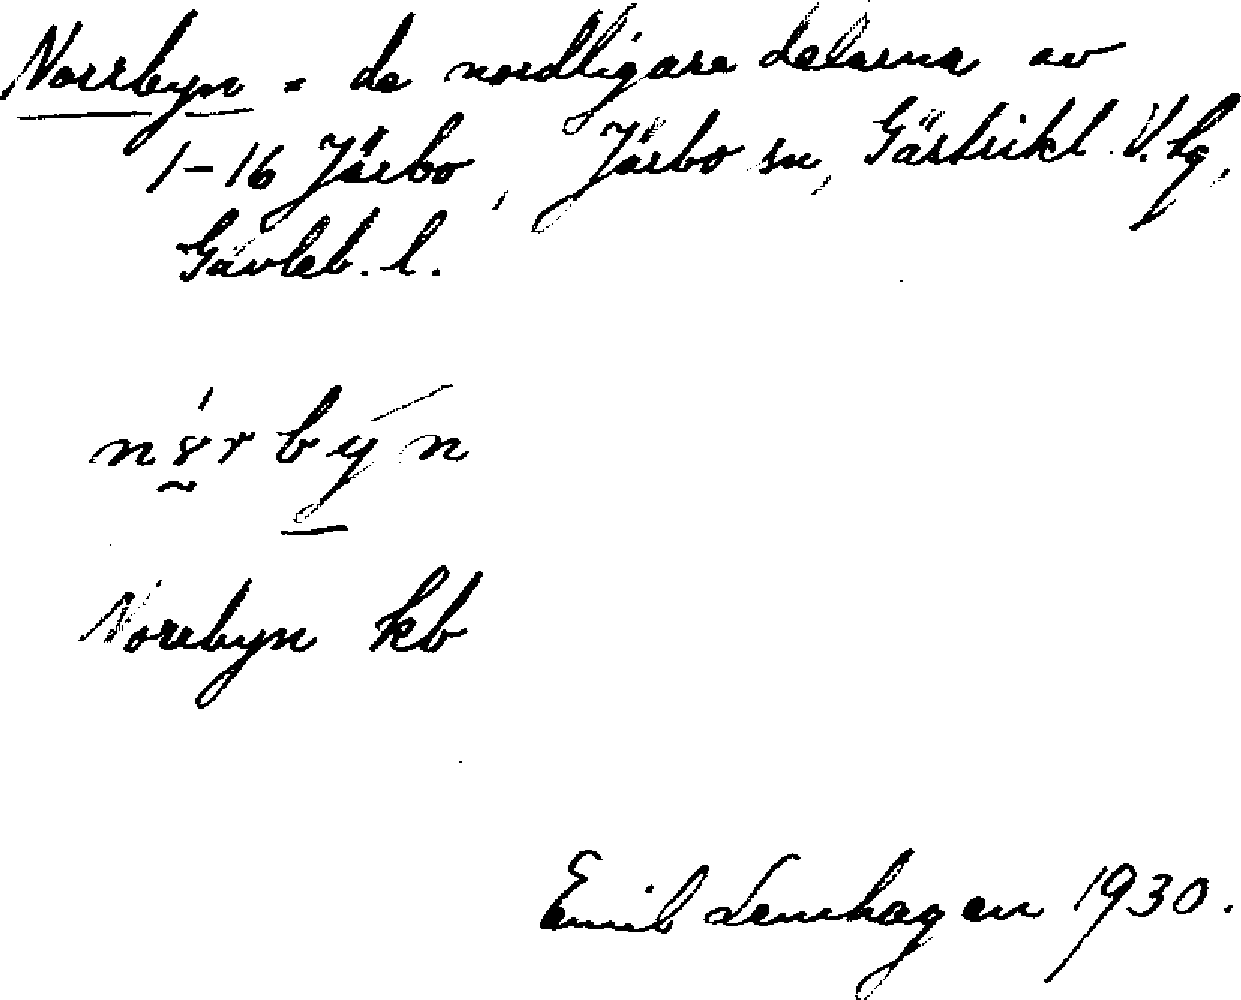 Norrbyn = de nordligare delarna av
1-16 Järbo, Järbo sn, Gästrikl. V. tg,
Gävleb. l.
Norrbyn kb
Emil Lenhagen 1930.